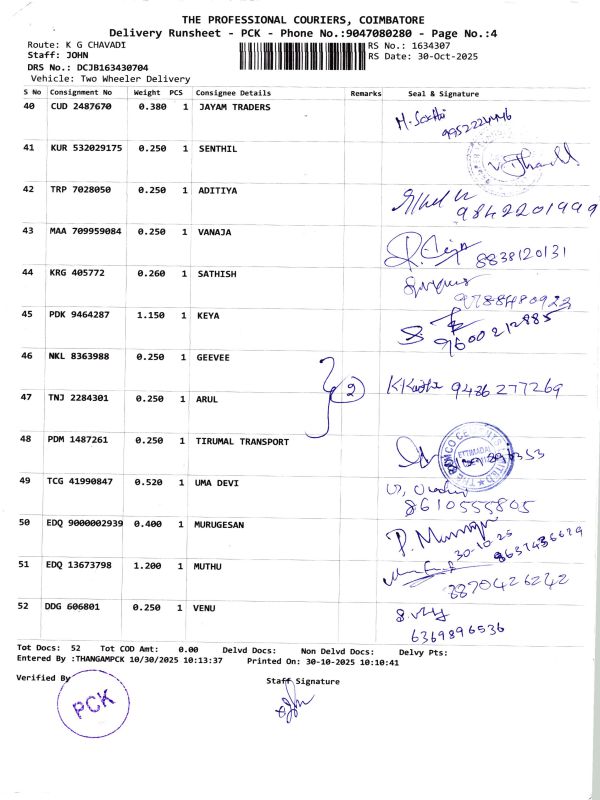 THE PROFESSIONAL COURIERS, COIMBATORE
Delivery Runsheet - PCK - Phone No.:9047080280 - Page No.:4
Route: K G CHAVADI
RS No.: 1634307
Staff: JOHN
RS Date: 30-Oct-2025
DRS No.: DCJB163430704
Vehicle: Two Wheeler Delivery
S No Consignment No Weight PCS Consignee Details Remarks Seal & Signature
40 CUD 2487670 0.380 1 JAYAM TRADERS
9952224446
41 KUR 532029175 0.250 1 SENTHIL
42 TRP 7028050 0.250 1 ADITIYA
9842201999
43 MAA 709959084 0.250 1 VANAJA
8838120131
44 KRG 405772 0.260 1 SATHISH
9788480923
45 PDK 9464287 1.150 1 KEYA
9600212885
46 NKL 8363988 0.250 1 GEEVEE
2
9486277269
47 TNJ 2284301 0.250 1 ARUL
48 PDM 1487261 0.250 1 TIRUMAL TRANSPORT
49 TCG 41990847 0.520 1 UMA DEVI
8610555805
50 EDQ 9000002939 0.400 1 MURUGESAN
30-10-25
8637436679
51 EDQ 13673798 1.200 1 MUTHU
8870426242
52 DDG 606801 0.250 1 VENU
6369896536
Tot Docs: 52 Tot COD Amt: 0.00 Delvd Docs: Non Delvd Docs: Delvy Pts:
Entered By :THANGAMPCK 10/30/2025 10:13:37 Printed On: 30-10-2025 10:10:41
Verified By
Staff Signature
PCK